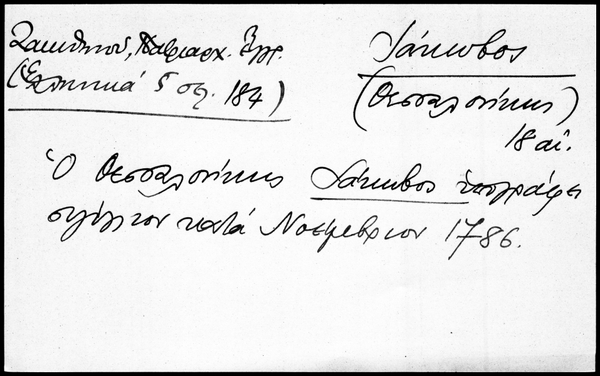 Ζακυθηνοῦ, Πατριαρχ. Ἔγγρ.
(Ἑλληνικά 5 σελ. 184)
Ἰάκωβος
(Θεσσαλονίκης)
18 αἰ.
Ὁ Θεσσαλονίκης Ἰάκωβος ὑπογράφει
σιγίλλιον κατά Νοέμβριον 1786.